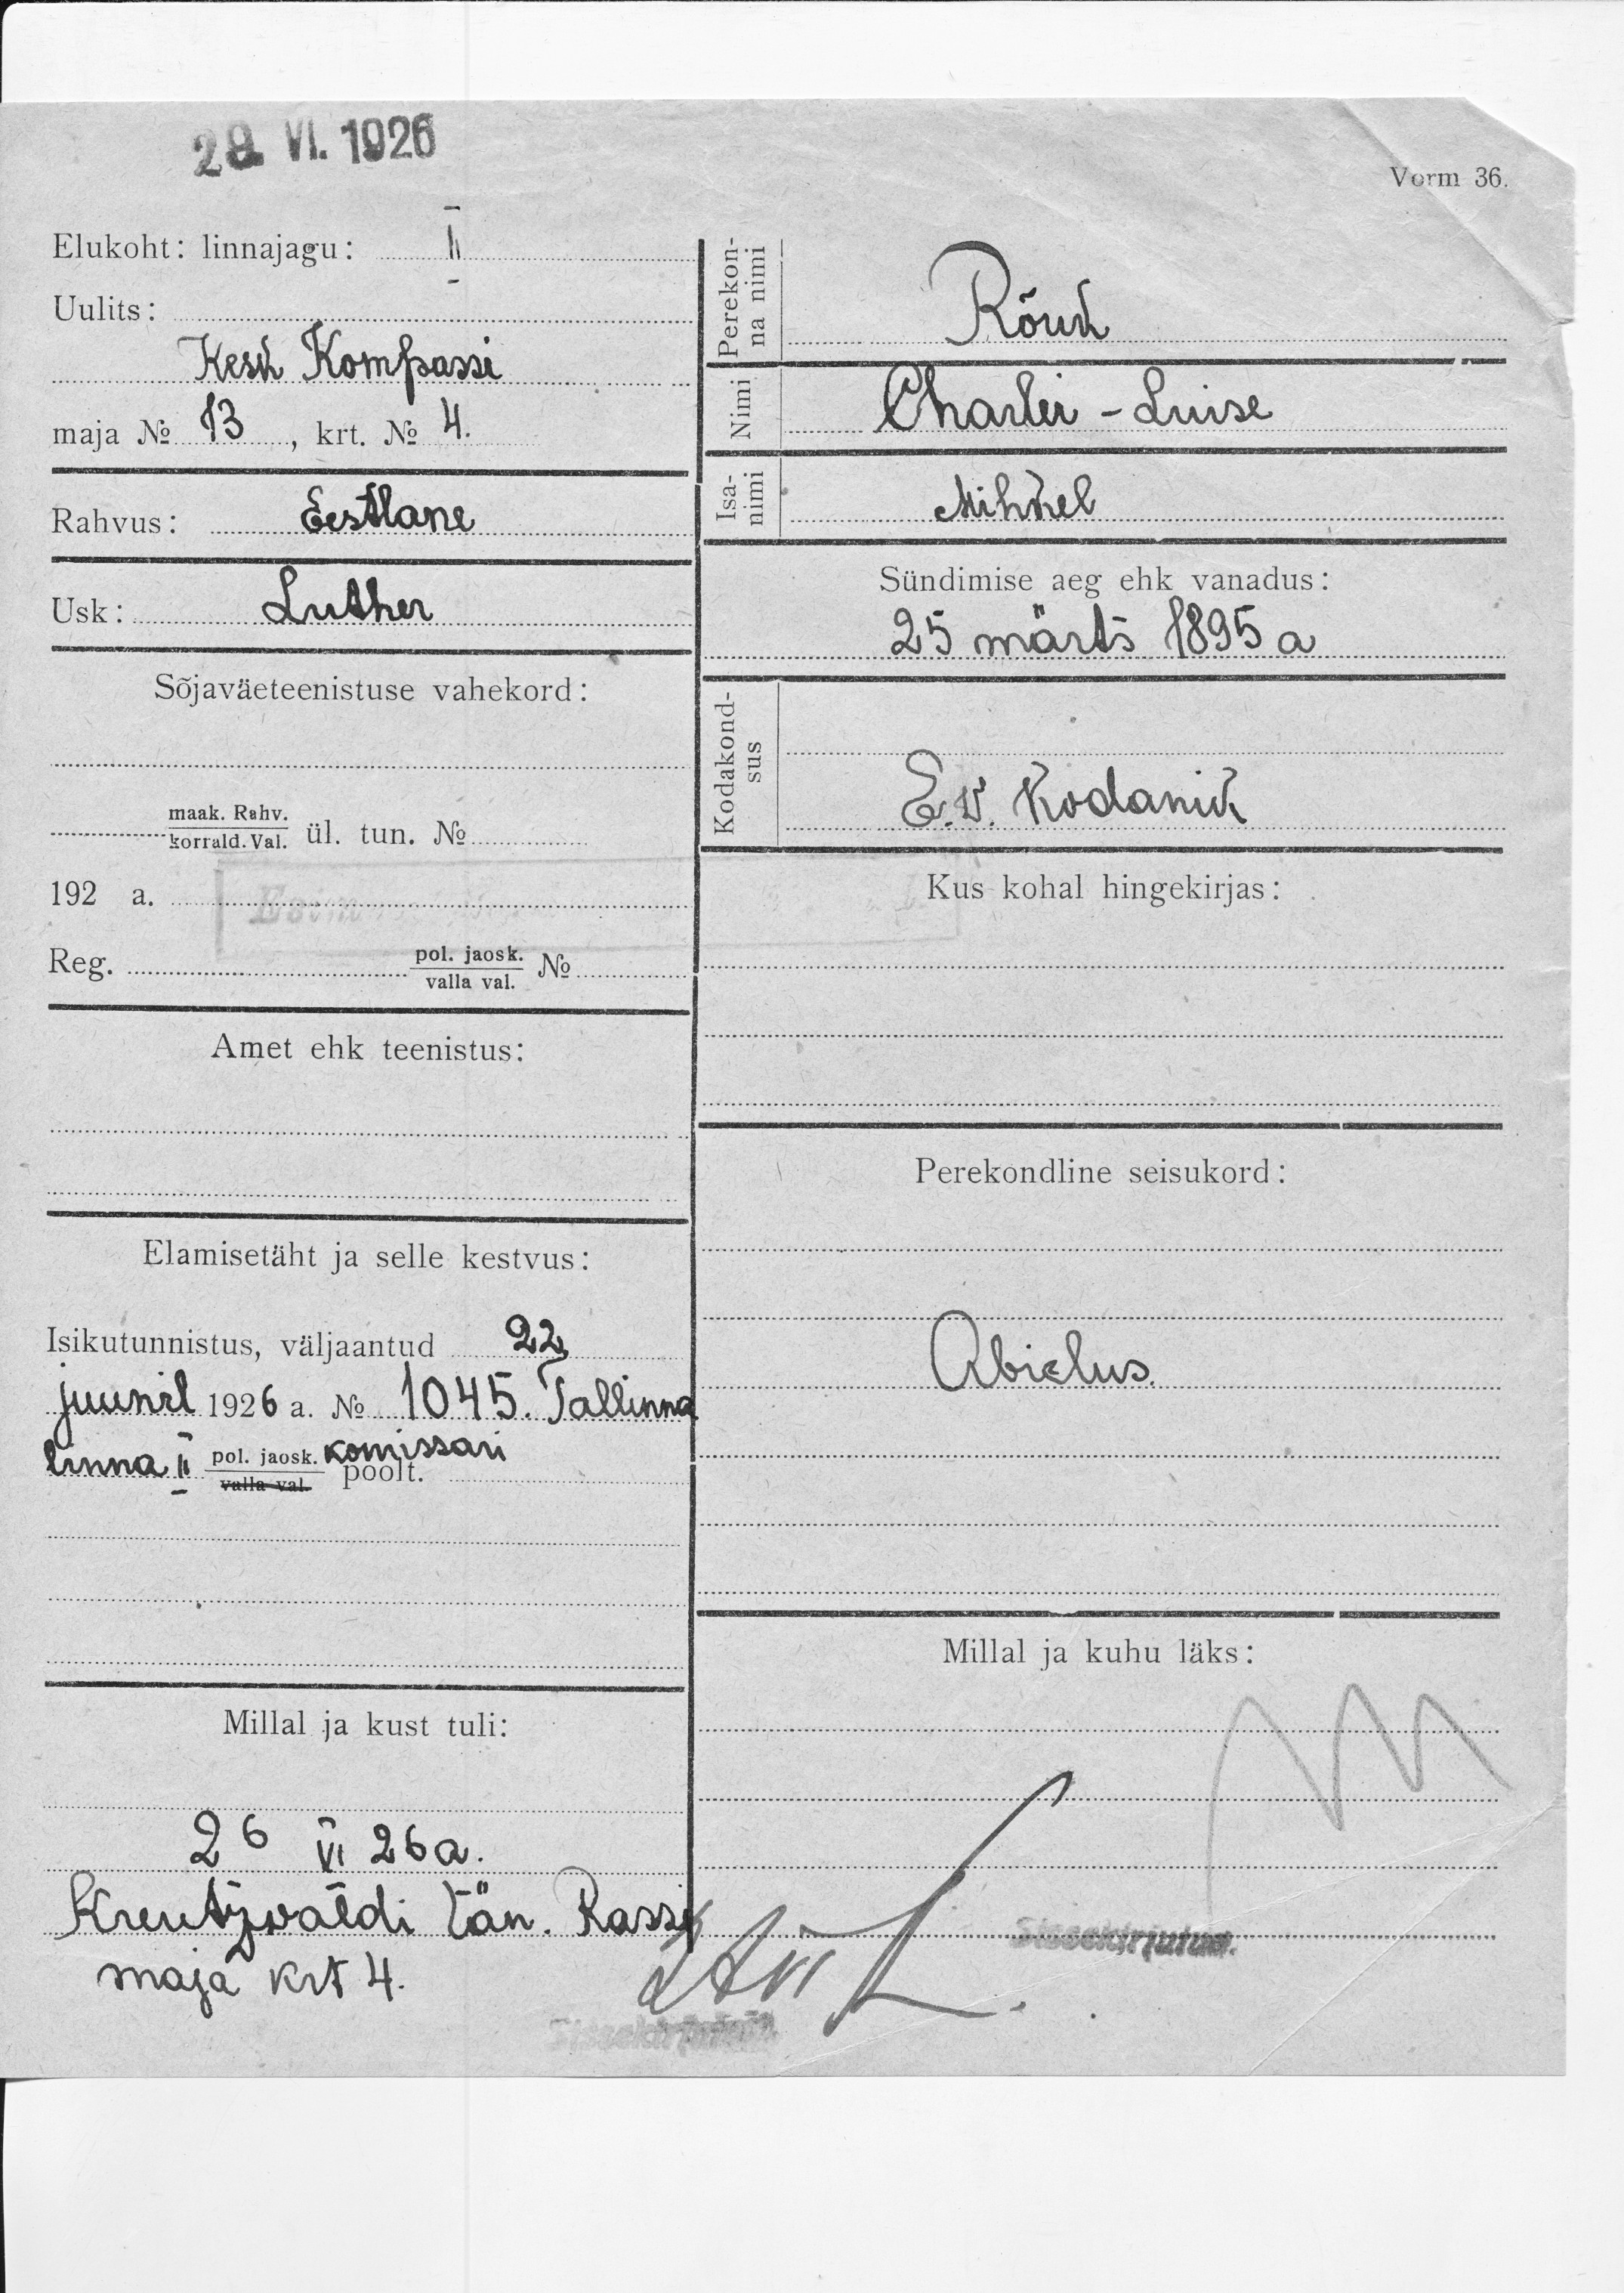 28. VI. 1926
Vorm 36.
Elukoht: linnajagu: II
Uulits:
Kesk Kompassi
maja № 13, krt. № 4.
Rahvus: Eestlane
Usk: Luther
Sõjaväeteenistuse vahekord:
maak. Rahv.
korrald. Val. ül. tun. №
192 a.
Reg. pol. jaosk. №
valla val.
Amet ehk teenistus:
Elamisetäht ja selle kestvus:
Isikutunnistus, väljaantud 22
juunil 1926 a. № 1045. Tallinna
linna II pol. jaosk. komissari
valla val. poolt.
Millal ja kust tuli:
26 VI 26 a.
Kreutzwaldi tän. Rassi
maja krt 4.
Perekon-
na nimi
Rõuk
Nimi Charlei - Luise
Isa-
nimi
Mihkel
Sündimise aeg ehk vanadus:
25 märts 1895 a
Kodakond-
sus
E.V. Kodanik
Kus kohal hingekirjas:
Perekondline seisukord:
Abielus.
Millal ja kuhu läks:
Sissekirjutud.
Sissekirjutud